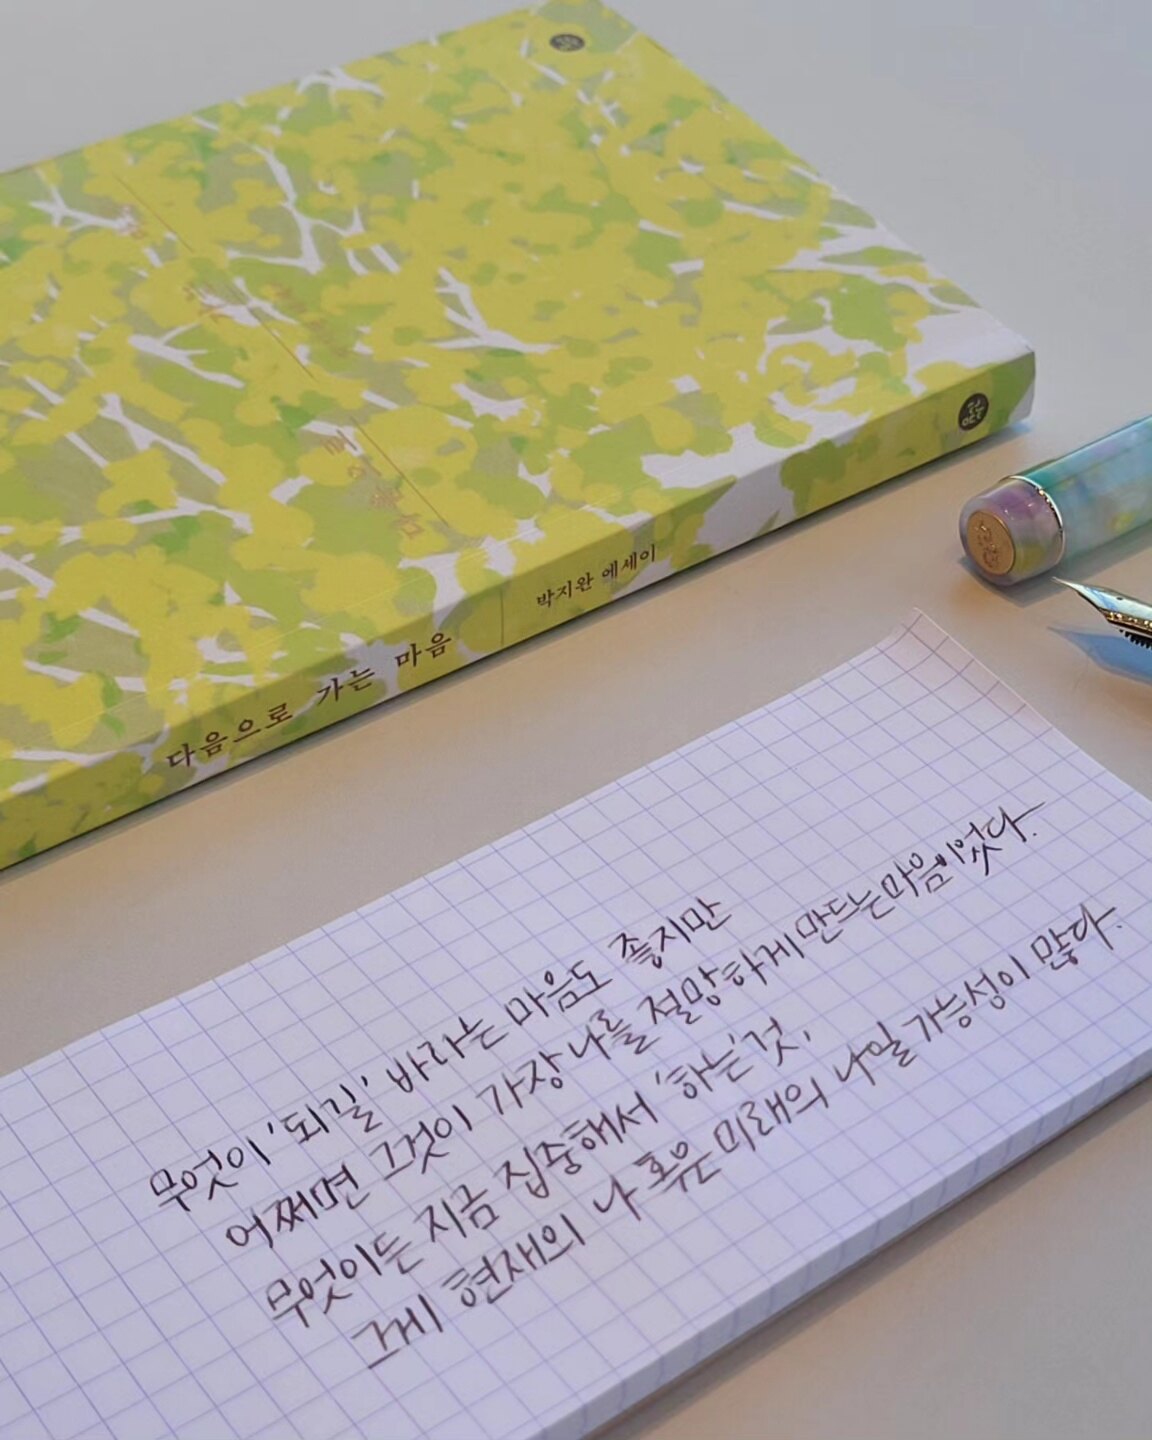 다음으로 가는 마음
박지완 에세이
무엇이 '되길' 바라는 마음도 좋지만
어쩌면 그것이 가장 나를 절망하게 만드는 마음이었다.
무엇이든 지금 집중해서 '하는' 것,
그게 현재의 나 혹은 미래의 나일 가능성이 많다.